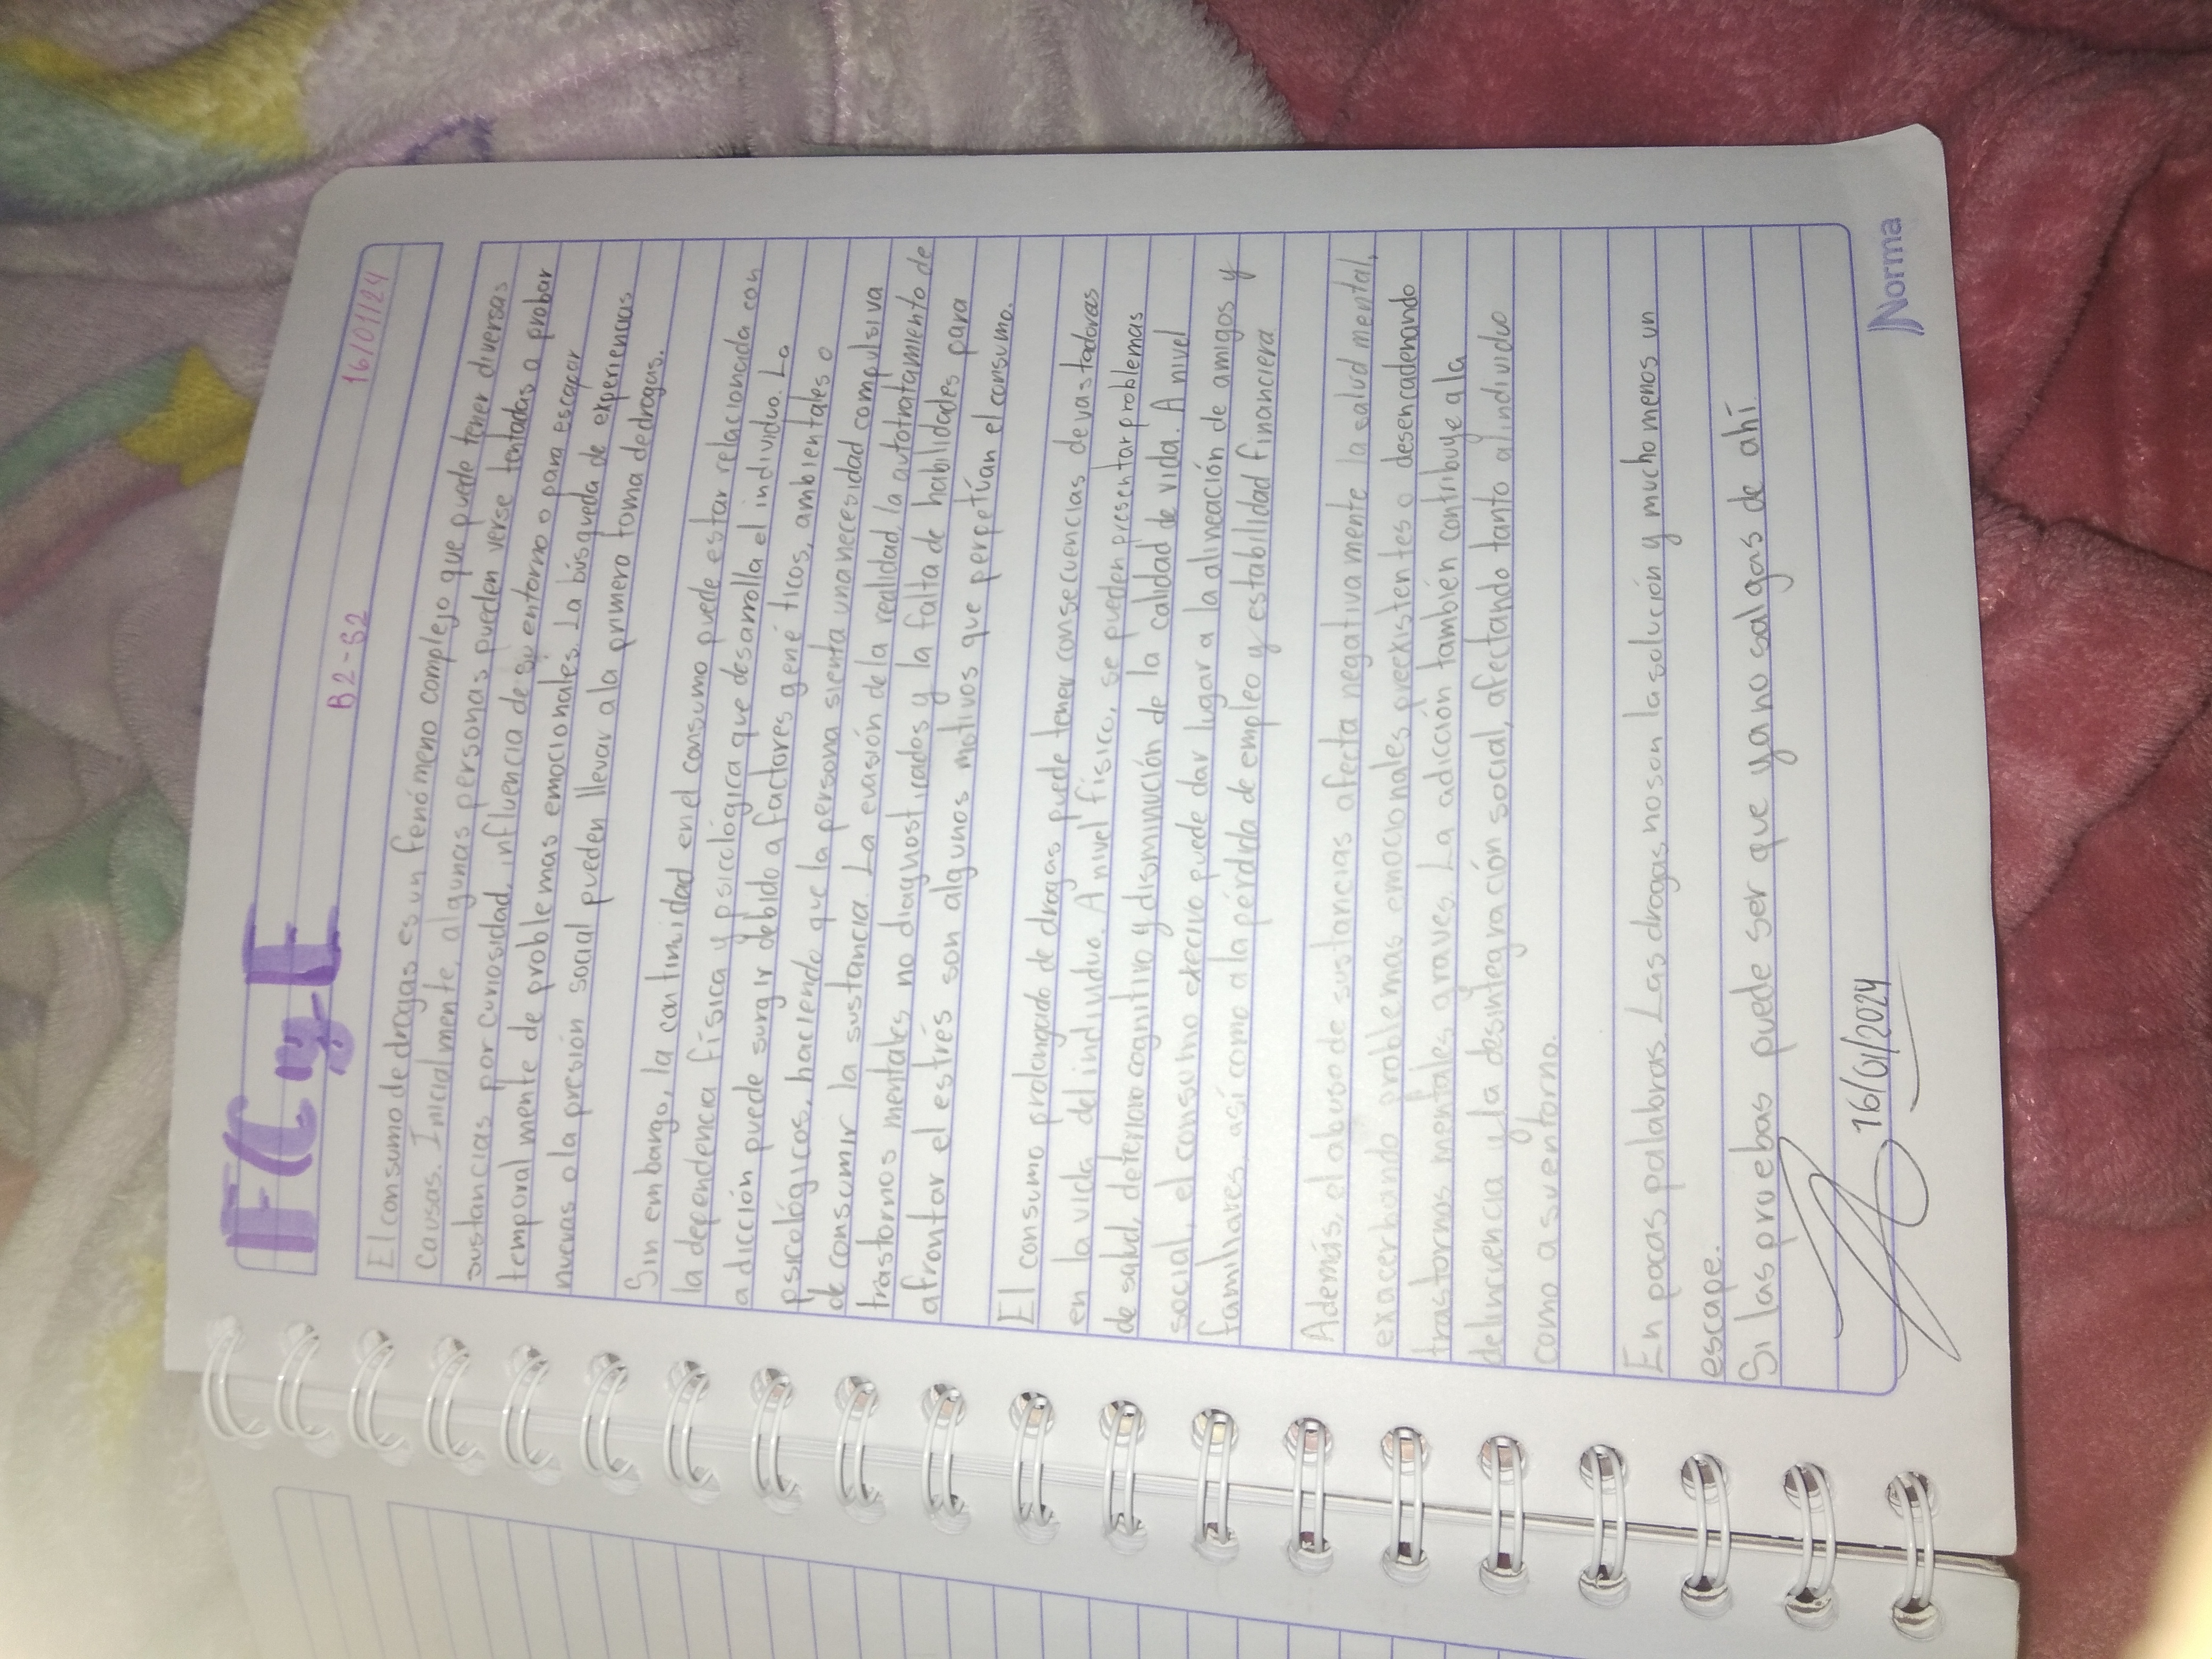 FC y E
16/01/24
B2-S2
El consumo de drogas es un fenómeno complejo que puede tener diversas
causas. Inicialmente, algunas personas pueden verse tentadas a probar
sustancias por curiosidad, influencia de su entorno o para escapar
temporalmente de problemas emocionales. La búsqueda de experiencias
nuevas o la presión social pueden llevar a la primera toma de drogas.
Sin embargo, la continuidad en el consumo puede estar relacionada con
la dependencia física y psicológica que desarrolla el individuo. La
adicción puede surgir debido a factores genéticos, ambientales o
psicológicos, haciendo que la persona sienta una necesidad compulsiva
de consumir la sustancia. La evasión de la realidad, la autotratamiento de
trastornos mentales no diagnosticados y la falta de habilidades para
afrontar el estrés son algunos motivos que perpetúan el consumo.
El consumo prolongado de drogas puede tener consecuencias devastadoras
en la vida del individuo. A nivel físico, se pueden presentar problemas
de salud, deterioro cognitivo y disminución de la calidad de vida. A nivel
social, el consumo excesivo puede dar lugar a la alineación de amigos y
familiares, así como a la pérdida de empleo y estabilidad financiera
Además, el abuso de sustancias afecta negativamente la salud mental,
exacerbando problemas emocionales preexistentes o desencadenando
trastornos mentales graves. La adicción también contribuye a la
delincuencia y la desintegración social, afectando tanto al individuo
como a su entorno.
En pocas palabras. Las drogas no son la solución y mucho menos un
escape.
Si las pruebas puede ser que ya no salgas de ahí.
16/01/2024
Norma